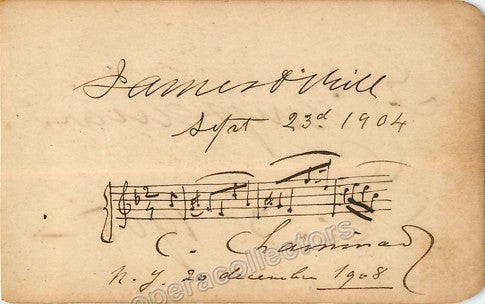 James O'Neill
Sept 23d 1904
C. Chaminade
N. Y. 20 december 1908
operacollectors